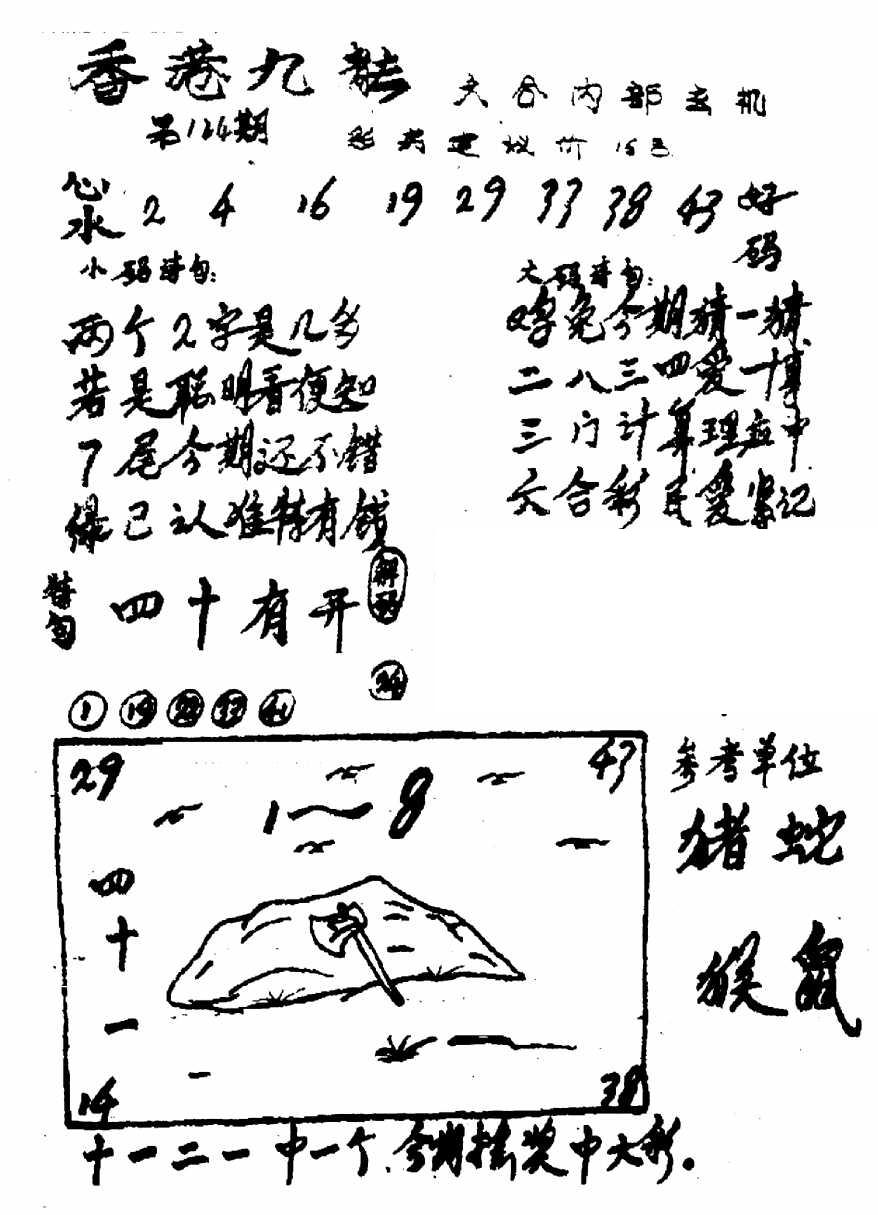 香港九龙
六合内部玄机
第124期
彩共建议价15元
心水 2 4 16 19 29 33 38 43 好码
小码诗句:
两个2字是几多
若是聪明看便知
7尾今期还不错
绿已认准特有钱
大码诗句:
鸡兔今期猜一猜
二八三四爱十博
三门计算理应中
六合彩民爱紧记
特句
四十有开
解码
34
1 19 28 33 41
29 1~8 43
四十一
14 38
参考单位
猪 蛇
猴 鼠
十一二一中一个,今期挂奖中大彩。